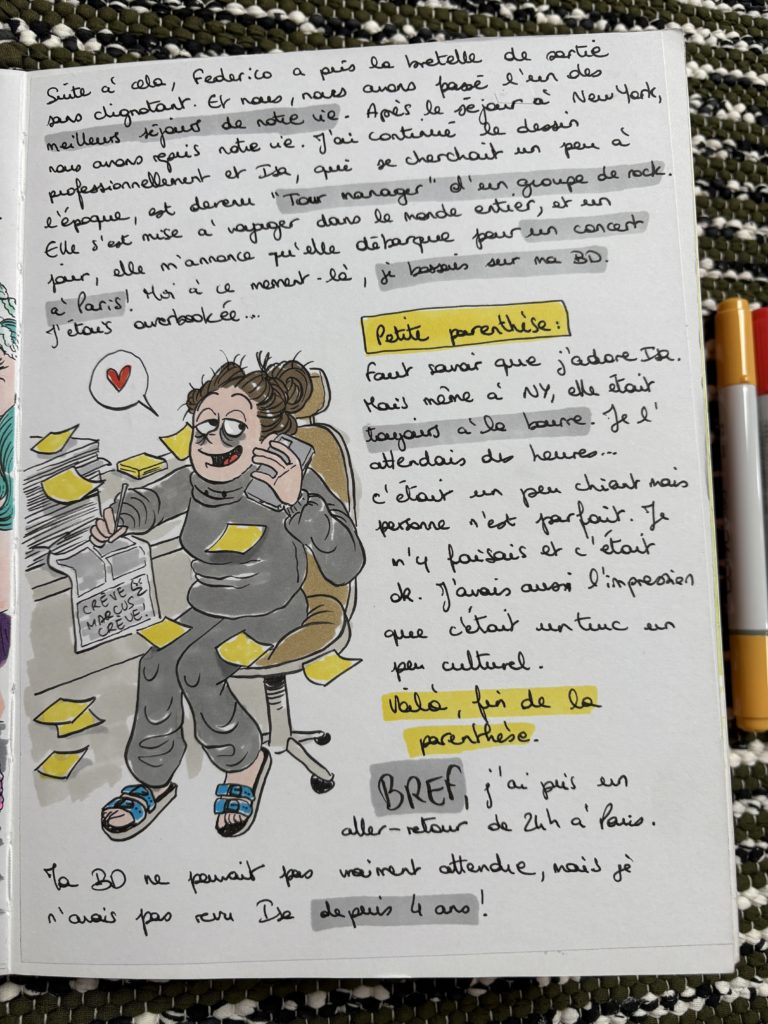 Suite à cela, Federico a pris la bretelle de sortie
sans clignotant. Et nous, nous avons passé l'un des
meilleurs séjours de notre vie. Après le séjour à New York,
nous avons repris notre vie. J'ai continué le dessin
professionnellement et Isa, qui se cherchait un peu à
l'époque, est devenu "Tour manager" d'un groupe de rock.
Elle s'est mise à voyager dans le monde entier, et un
jour, elle m'annonce qu'elle débarque pour un concert
à Paris! Moi à ce moment-là, je bossais sur ma BD.
J'étais overbookée...
Petite parenthèse:
Faut savoir que j'adore Isa.
Mais même à NY, elle était
toujours à la bourre. Je l'
attendais des heures...
c'était un peu chiant mais
personne n'est parfait. Je
m'y faisais et c'était
ok. J'avais aussi l'impression
que c'était un truc un
peu culturel.
Voilà, fin de la
parenthèse.
CRÈVE
MARCUS
CRÈVE!
BREF, j'ai pris un
aller-retour de 24h à Paris.
Ma BD ne pouvait pas vraiment attendre, mais je
n'avais pas revu Isa depuis 4 ans!